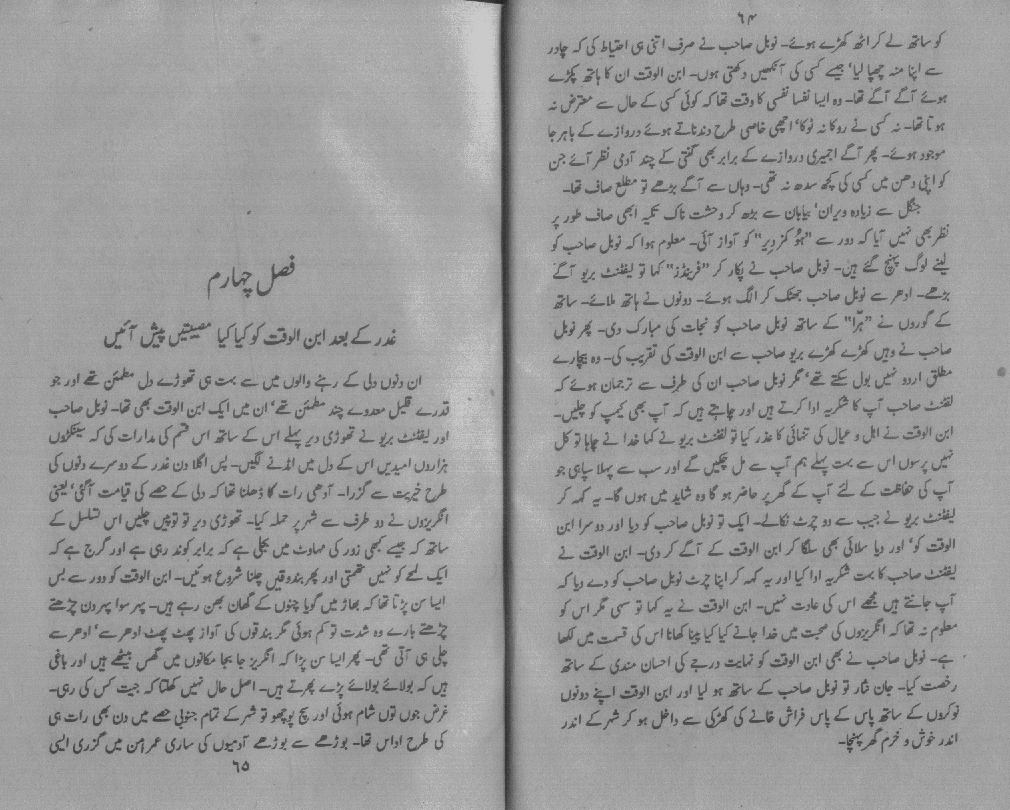 ۶۴
کو ساتھ لے کر اٹھ کھڑے ہوئے۔ نوبل صاحب نے صرف اتنی ہی احتیاط کی کہ چادر
سے اپنا منہ چھپا لیا‘ جیسے کسی کی آنکھیں دکھتی ہوں۔ ابن الوقت ان کا ہاتھ پکڑے
ہوئے آگے آگے تھا۔ وہ ایسا نفسا نفسی کا وقت تھا کہ کوئی کسی کے حال سے معترض نہ
ہوتا تھا۔ نہ کسی نے روکا نہ ٹوکا‘ اچھی خاصی طرح دندناتے ہوئے دروازے کے باہر جا
موجود ہوئے۔ پھر آگے اجمیری دروازے کے برابر بھی گنتی کے چند آدمی نظر آئے جن
کو اپنی دھن میں کسی کی کچھ سدھ نہ تھی۔ وہاں سے آگے بڑھے تو مطلع صاف تھا۔
جنگل سے زیادہ ویران‘ بیابان سے بڑھ کر وحشت ناک تکیہ ابھی صاف طور پر
نظر بھی نہیں آیا کہ دور سے "ہُو کمز دِیر" کو آواز آئی۔ معلوم ہوا کہ نوبل صاحب کو
لینے لوگ پہنچ گئے ہیں۔ نوبل صاحب نے پکار کر "فرینڈز" کہا تو لیفٹنٹ بریو آگے
بڑھے۔ ادھر سے نوبل صاحب جھٹک کر الگ ہوئے۔ دونوں نے ہاتھ ملائے۔ ساتھ
کے گوروں نے "ہّرا" کے ساتھ نوبل صاحب کو نجات کی مبارک دی۔ پھر نوبل
صاحب نے وہیں کھڑے کھڑے بریو صاحب سے ابن الوقت کی تقریب کی۔ وہ بیچارے
مطلق اردو نہیں بول سکتے تھے‘ مگر نوبل صاحب ان کی طرف سے ترجمان ہوئے کہ
لفٹنٹ صاحب آپ کا شکریہ ادا کرتے ہیں اور چاہتے ہیں کہ آپ بھی کیمپ کو چلیں۔
ابن الوقت نے اہل و عیال کی تنہائی کا عذر کیا تو لفٹنٹ بریو نے کہا خدا نے چاہا تو کل
نہیں پرسوں اس سے بہت پہلے ہم آپ سے مل چکیں گے اور سب سے پہلا سپاہی جو
آپ کی حفاظت کے لئے آپ کے گھر پر حاضر ہو گا وہ شاید میں ہوں گا۔ یہ کہہ کر
لیفٹنٹ بریو نے جیب سے دو چرٹ نکالے۔ ایک تو نوبل صاحب کو دیا اور دوسرا ابن
الوقت کو‘ اور دیا سلائی بھی سلگا کر ابن الوقت کے آگے کر دی۔ ابن الوقت نے
لیفٹنٹ صاحب کا بہت شکریہ ادا کیا اور یہ کہہ کر اپنا چرٹ نوبل صاحب کو دے دیا کہ
آپ جانتے ہیں مجھے اس کی عادت نہیں۔ ابن الوقت نے یہ کہا تو سہی مگر اس کو
معلوم نہ تھا کہ انگریزوں کی صحبت میں خدا جانے کیا کیا پینا کھانا اس کی قسمت میں لکھا
ہے۔ نوبل صاحب نے بھی ابن الوقت کو نہایت درجے کی احسان مندی کے ساتھ
رخصت کیا۔ جان نثار تو نوبل صاحب کے ساتھ ہو لیا اور ابن الوقت اپنے دونوں
نوکروں کے ساتھ پاس کے پاس فراش خانے کی کھڑکی سے داخل ہو کر شہر کے اندر
اندر خوش و خرم گھر پہنچا۔
فصل چہارم
غدر کے بعد ابن الوقت کو کیا کیا مصیبتیں پیش آئیں
ان دنوں دلی کے رہنے والوں میں سے بہت ہی تھوڑے دل مطمئن تھے اور جو
قدرے قلیل معدودے چند مطمئن تھے‘ ان میں ایک ابن الوقت بھی تھا۔ نوبل صاحب
اور لیفٹنٹ بریو نے تھوڑی دیر پہلے اس کے ساتھ اس قسم کی مدارات کی کہ سینکڑوں
ہزاروں امیدیں اس کے دل میں امڈنے لگیں۔ پس اگلا دن غدر کے دوسرے دنوں کی
طرح خیریت سے گزرا۔ آدھی رات کا ڈھلنا تھا کہ دلی کے حصے کی قیامت آ گئی‘ یعنی
انگریزوں نے دو طرف سے شہر پر حملہ کیا۔ تھوڑی دیر تو توپیں چلیں اس تسلسل کے
ساتھ کہ جیسے کبھی زور کی مہاوٹ میں بجلی ہے کہ برابر کوند رہی ہے اور گرج ہے کہ
ایک لمحے کو نہیں تھمتی اور پھر بندوقیں چلنا شروع ہوئیں۔ ابن الوقت کو دور سے بس
ایسا سن پڑتا تھا کہ بھاڑ میں گویا چنوں کے گھان بھن رہے ہیں۔ پہر سوا پہر دن چڑھتے
چڑھتے بارے وہ شدت تو کم ہوئی مگر بندوقوں کی آواز پھٹ پھٹ ادھر سے‘ ادھر سے
چلی ہی آتی تھی۔ پھر ایسا سن پڑا کہ انگریز جا بجا مکانوں میں گھس بیٹھے ہیں اور باغی
ہیں کہ بولائے بولائے پڑے پھرتے ہیں۔ اصل حال نہیں کھلتا کہ جیت کس کی رہی۔
غرض جوں توں شام ہوئی اور سچ پوچھو تو شہر کے تمام جنوبی حصے میں دن بھی رات ہی
کی طرح اداس تھا۔ بوڑھے سے بوڑھے آدمیوں کی ساری عمر امن میں گزری ایسی
۶۵